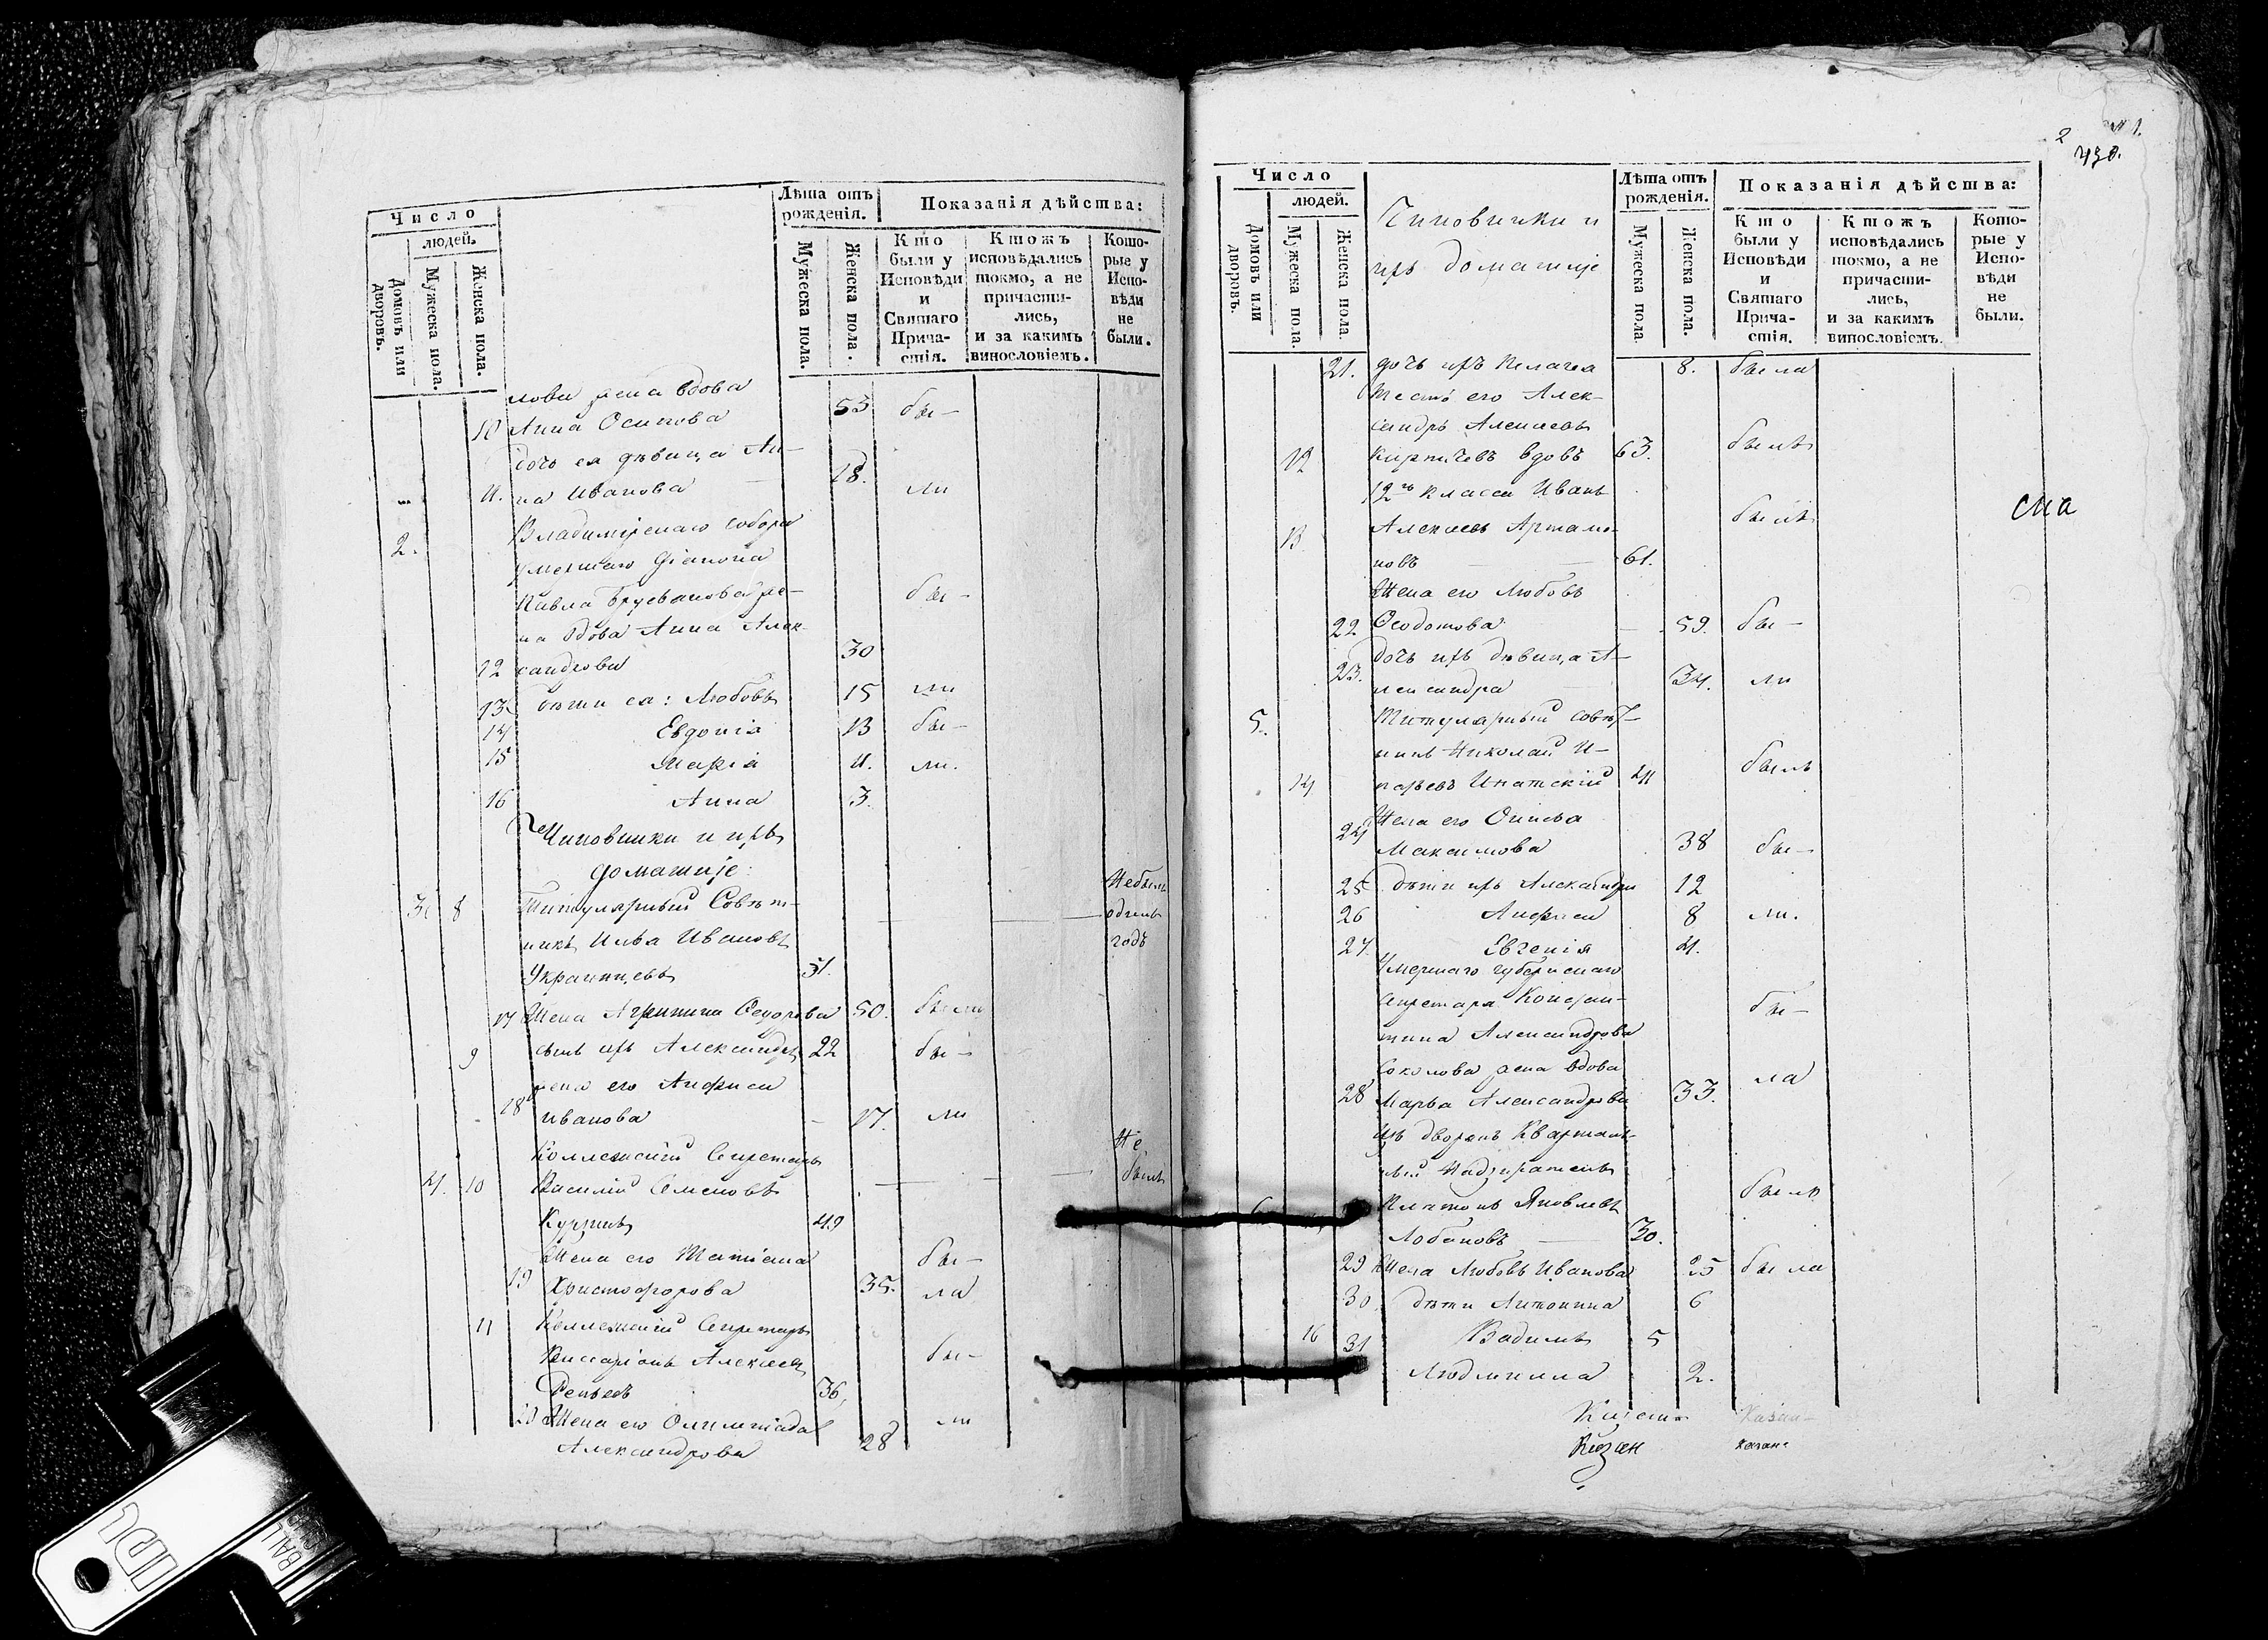 Число
людей.
Домовъ или дворовъ.
Мужеска пола.
Женска пола.
Лѣта отъ рожденія.
Мужеска пола.
Женска пола.
Показанія дѣйства:
Кто были у Исповѣди и Святаго Прича-стія.
Ктожъ исповѣдались токмо, а не причасти-лись, и за какимъ винословіемъ.
Кото-рые у Испо-вѣди не были.
лова жена вдова
10 Анна Осипова 53 бы-
дочь ея дѣвица Ан-
11. на Иванова 18. ли
2. Владимірскаго собора
умершаго діакона
Павла жe-
на вдова Анна Алек- бы-
12 сандрова 30
13. дѣти ея: Любовь 15 ли
14 Евдокія 13 бы-
15 Марія 11. ли.
16 Анна 3.
Чиновники и ихъ
домашніе:
3 8 Титулярный Совѣт- Небылъ
никъ Илья Ивановъ одинъ годъ
Украинцевъ 51.
17 Жена Агрипина Ѳедорова 50. были
9 сынъ ихъ Александръ 22 бы-
жена его Анфиса
18 Иванова 17. ли
Коллежскій Секретарь Не
4. 10 Василій Семеновъ былъ
49
Жена его Татіана бы-
19 Христофорова 35. ла
11 Коллежскій Секретарь
Виссаріонъ Алексѣевъ бы-
Репьевъ 36,
20 Жена его Олимпіада ли
Александрова 28
2
430.
Число
людей.
Домовъ или дворовъ.
Мужеска пола.
Женска пола.
Чиновники и
ихъ домашніе
Лѣта отъ рожденія.
Мужеска пола.
Женска пола.
Показанія дѣйства:
Кто были у Исповѣди и Святаго Прича-стія.
Ктожъ исповѣдались токмо, а не причасти-лись, и за какимъ винословіемъ.
Кото-рые у Испо-вѣди не были.
21. дочь ихъ Пелагея 8. была
Тесть его Алек-
сандръ Алексѣевъ
12 Кирпичевъ вдовъ 63. былъ
12го класса Иванъ
13. Алексѣевъ Артамо- былъ
новъ 61.
Жена его Любовь
22 Ѳеодотова 59. бы-
23. дочь ихъ дѣвица А-
лександра 34. ли
5. Титулярный совѣт-
никъ Николай И-
14 Инатскій 41 былъ
24 Жена его
Максимова 38 бы-
25 дѣти ихъ Александра 12
26 Анфиса 8 ли.
27. Евгенія 4.
Умершаго губернскаго
секретаря Констан- бы-
тина Александрова
Соколова жена вдова ла
28 Марья Александрова 33.
Изъ дворянъВарталь-
ный Надзиратель
6 Платонъ Яковлевъ былъ
Лобановъ 30.
29 Жена Любовь Иванова 25 была
30. дѣти Антонина 6
16 Вадимъ 5
31 Людмилла 2.
сла
Казан
Казан-